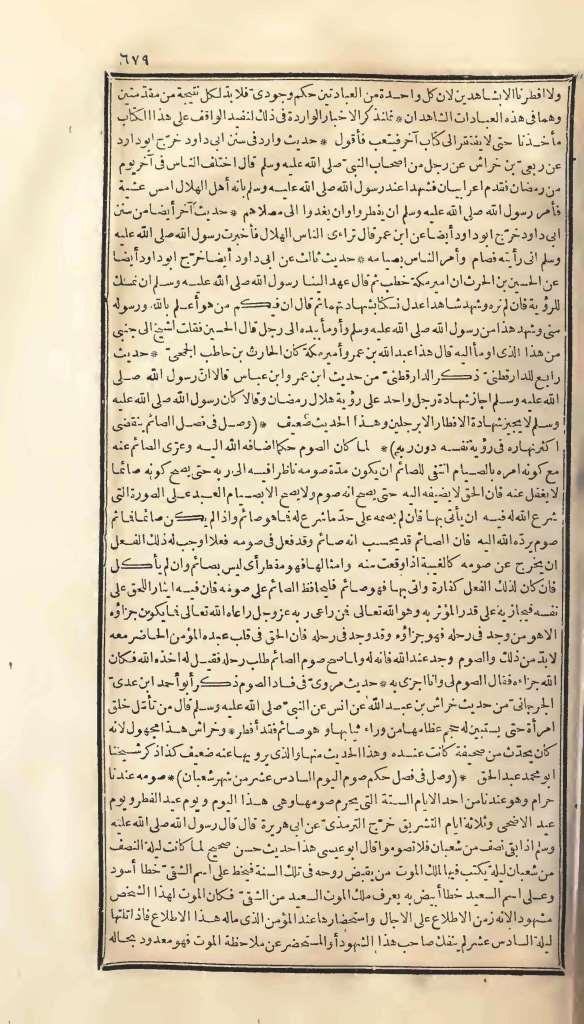 ٦٧٩
ولا افطرنا الا بشاهدين لان كل واحدة من العبادتين حكم وجودى فلا بد لكل نتيجة من مقدمتين
وهما فى هذه العبادات الشاهدان * فلنذكر الاخبار الواردة فى ذلك ليقصد الواقف على هذا الكتاب
مأخذنا حتى لا يفتقر الى كتاب آخر فيتعب فأقول * حديث وارد فى سنن ابى داود خرّج ابو داود
عن ربعى بن خراش عن رجل من اصحاب النبى صلى الله عليه وسلم قال اختلف الناس فى آخر يوم
من رمضان فقدم اعرابيان فشهدا عند رسول الله صلى الله عليه وسلم بانه أهل الهلال امس عشية
فأمر رسول الله صلى الله عليه وسلم ان يفطروا وان يغدوا الى مصلاهم * حديث آخر أيضا من سنن
ابى داود خرّج ابو داود أيضا عن ابن عمر قال تراءى الناس الهلال فأخبرت رسول الله صلى الله عليه
وسلم انى رأيته فصام وأمر الناس بصيامه * حديث ثالث عن ابى داود أيضا خرّج ابو داود أيضا
عن الحسين بن الحرث ان امير مكة خطب ثم قال عهد الينا رسول الله صلى الله عليه وسلم ان ننسك
للرؤية فان لم نره وشهد شاهدا عدل نسكنا بشهادتهما ثم قال ان فيكم من هو أعلم بالله ورسوله
منى وشهد هذا من رسول الله صلى الله عليه وسلم وأومأ بيده الى رجل قال الحسين فقلت لشيخ الى جنبى
من هذا الذى اومأ اليه قال هذا عبد الله بن عمر وأمير مكة كان الحارث بن حاطب الجمحى * حديث
رابع للدارقطنى ذكر الدارقطنى من حديث ابن عمر وابن عباس قالا انّ رسول الله صلى
الله عليه وسلم اجاز شهادة رجل واحد على رؤية هلال رمضان وقالا كان رسول الله صلى الله عليه
وسلم لا يجيز شهادة الافطار الا برجلين وهذا الحديث ضعيف * (وصل فى فصل الصائم ينقضى
اكثر نهاره فى رؤية نفسه دون ربه) * لما كان الصوم حكما اضافه الله اليه وعرّى الصائم عنه
مع كونه امره بالصيام انبغى للصائم ان يكون مدّة صومه ناظرا فيه الى ربه حتى يصح كونه صائما
لا يغفل عنه فان الحق لا يضيفه اليه حتى يصح انه صوم ولا يصح الا بصيام العبد على الصورة التى
شرع الله له فيه ان يأتى بها فان لم يصمه على حدّ ما شرع له فما هو صائم واذا لم يكن صائما فما ثم
صوم يردّه الله اليه فان الصائم قد يحسب انه صائم وقد فعل فى صومه فعلا اوجب له ذلك الفعل
ان يخرج عن صومه كالغيبة اذا وقعت منه وامثالها فهو مفطر أى ليس بصائم وان لم يأكل
فان كان لذلك الفعل كفارة وأتى بها فهو صائم فليحافظ الصائم على صومه فان فيه ايثار الحق على
نفسه فيجازيه على قدر المؤثر به وهو الله تعالى فمن راعى ربه عز وجل راعاه الله تعالى فما يكون جزاؤه
الا هو من وجد فى رحله فهو جزاؤه وقد وجد فى رحله فان الحق فى قلب عبده المؤمن الحاضر معه
لا بدّ من ذلك والصوم وجد عند الله فانه له ولما صح صوم الصائم طلب رحله فقيل له اخذه الله فكان
الله جزاءه فقال الصوم لى وانا اجزى به * حديث مروى فى فساد الصوم ذكر أبو أحمد ابن عدى
الجرجانى من حديث خراش بن عبد الله عن انس عن النبى صلى الله عليه وسلم قال من تأمّل خلق
امرأة حتى يستبين له حجم عظامها من وراء ثيابها وهو صائم فقد أفطر * وخراش هذا مجهول لانه
كان يحدّث من صحيفة كانت عنده وهذا الحديث منها والذى يرويها عنه ضعيف كذا ذكر شيخنا
ابو محمد عبد الحق * (وصل فى فصل حكم صوم اليوم السادس عشر من شهر شعبان) * صومه عندنا
حرام وهو عندنا من احد الايام الستة التى يحرم صومها وهى هذا اليوم ويوم عيد الفطر ويوم
عيد الاضحى وثلاثة ايام التشريق خرّج الترمذى عن ابى هريرة قال قال رسول الله صلى الله عليه
وسلم اذا بقى نصف من شعبان فلا تصوموا قال ابو عيسى هذا حديث حسن صحيح لما كانت ليلة النصف
من شعبان ليلة يكتب فيها ملك الموت من يقبض روحه فى تلك السنة فيخط على اسم الشقى خطا أسود
وعلى اسم السعيد خطا أبيض به يعرف ملك الموت السعيد من الشقى فكان الموت لهذا الشخص
مشهودا لانه زمن الاطلاع على الاجال واستحضارها عند المؤمن الذى ماله هذا الاطلاع فاذا تلتها
ليلة السادس عشر لم ينفك صاحب هذا الشهود أو المستحضر عن ملاحظة الموت فهو معدود بحاله